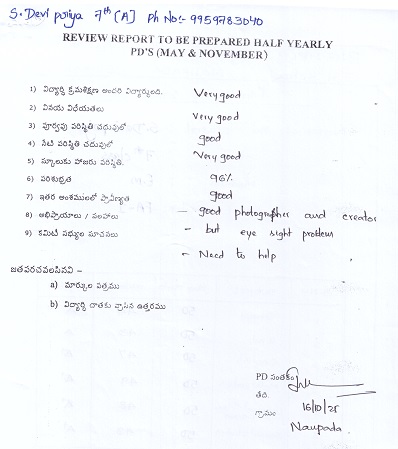 S. Devi priya 7th (A) Ph No:- 9959783040
REVIEW REPORT TO BE PREPARED HALF YEARLY
PD'S (MAY & NOVEMBER)
1) విద్యార్థి క్రమశిక్షణ అందరి విద్యార్థులది. Very good
2) వినయ విధేయతలు Very good
3) పూర్వపు పరిస్థితి చదువులో good
4) నేటి పరిస్థితి చదువులో Very good
5) స్కూలుకు హాజరు పరిస్థితి. 96%
6) పరిశుభ్రత good
7) ఇతర అంశములలో ప్రావీణ్యత - good photographer and creator
8) అభిప్రాయాలు / సలహాలు - but eye sight problem
9) కమిటీ సభ్యుల సూచనలు - Need to help
జతపరచవలసినవి -
a) మార్కుల పత్రము
b) విద్యార్థి దాతకు వ్రాసిన ఉత్తరము
PD సంతకం
తేది. 16/10/25
గ్రామం Naupada.